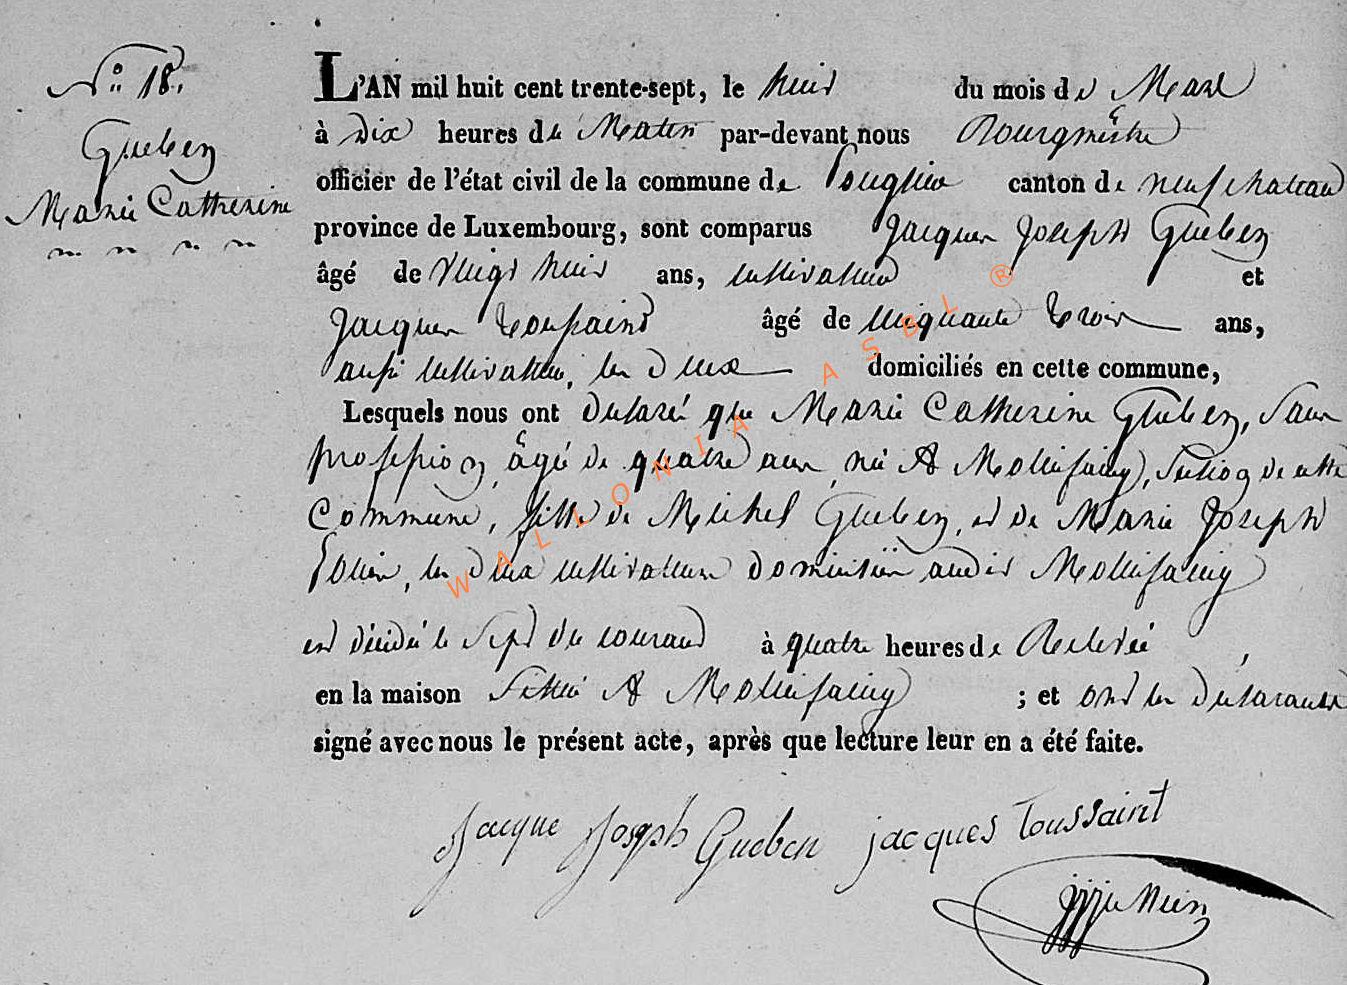 N.° 18.
Gueben
Marie Catherine
L'AN mil huit cent trente-sept, le huit du mois de Mars
à dix heures du Matin par-devant nous Bourgmestre
officier de l'état civil de la commune de Longlier canton de neufchateau
province de Luxembourg, sont comparus Jacques Joseph Gueben
âgé de vingt huit ans, cultivateur et
Jacques Toussaint âgé de cinquante trois ans,
aussi cultivateur, les deux domiciliés en cette commune,
Lesquels nous ont déclaré que Marie Catherine Gueben, sans
profession, âgée de quatre ans, née A Mollifaing, section de cette
Commune, fille de Michel Gueben, et de Marie Joseph
les deux cultivateurs domiciliés audit Mollifaing
est décédée le sept du courant à quatre heures de Relevée,
en la maison sittuée A Mollifaing ; et ont les déclarants
signé avec nous le présent acte, après que lecture leur en a été faite.
Jacque Joseph Gueben jacques Toussaint
WALLONIA ASBL ®